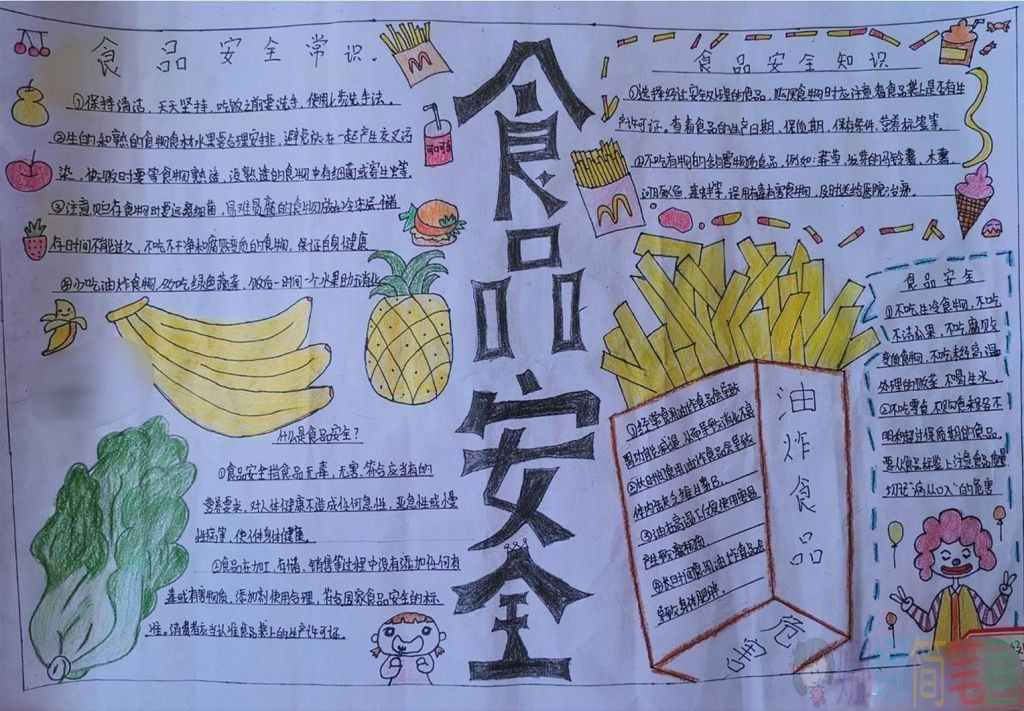 食品安全常识.
①保持清洁，天天坚持，吃饭之前要洗手，使用七步洗手法。
②生的和熟的食物食材水果要合理安排，避免放在一起产生交叉污
染，做饭时要等食物熟透，没熟透的食物中有细菌或寄生虫等。
③注意贮存食物时要远离细菌，易腐的食物放冷冻层储
存时间不能过久，不吃不干净和腐败变色的食物，保证自身健康
④少吃油炸食物，多吃绿色蔬菜，饭后一时间一个水果助消化
什么是食品安全？
①食品安全指食品无毒、无害，符合应当有的
营养要求，对人体健康不造成任何急性，亚急性或小慢
性症等，使人体身体健康。
①食品在加工、存储，销售等过程中没有添加任何有
毒或有害物质，添加剂使用合理，符合国家食品安全的标
准。消费者应当认准食品袋上的生产许可证。
食品安全
可口可乐
食品安全知识
①选择经过安全处理的食品，购买食物时应注意看食品袋上是否有生
产许可证。查看食品的生产日期、保质期，保存条件，营养标签等。
②不吃有物的含毒物质食品，例如：毒草，发芽的马铃薯、木薯，
河豚鱼，毒蚌等，误用毒害食物，及时送给医院治病。
油炸食品
①经常食用油炸食品会导致
胃功能减退，从而导致消化不良
②长时间食用油炸食品会导致
体内缺乏维生素B。
③油在高温下反复使用要易
产生致癌物质
④长时间食用油炸食品会
导致身体肥胖。
危害
食品安全
①不吃生冷食物，不吃
不洁瓜果，不吃腐败
变质食物，不吃未经高温
处理的饭菜，不喝生水，
②不吃零食，不购食来路不
明和超过保质期的食品，
要从食品标签上注意食品质量
切记"病从口入"的危害
简笔画